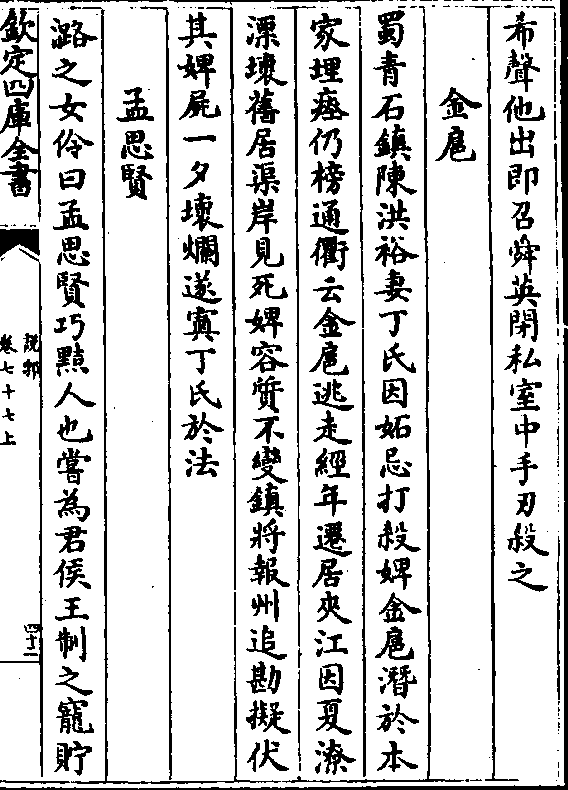 希聲他出即召舜英閉私室中手刃殺之
金巵
蜀青石鎮陳洪裕妻丁氏因妬忌打殺婢金巵潛於本
家埋瘞仍榜通衢云金巵逃走經年遷居夾江因夏潦
漂壞舊居渠岸見死婢容質不變鎮將報州追勘擬伏
其婢屍一夕壞爛遂寘丁氏於法
孟思賢
潞之女伶曰孟思賢巧黠人也嘗為君侯王制之寵貯
欽定四庫全書
說郛
卷七十七上
四十二